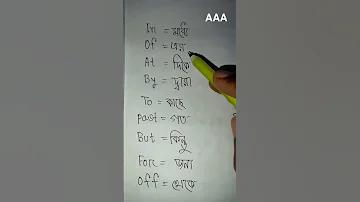 AAA
In = মধ্যে
Of = এর
At = দিকে
By = দ্বারা
To = কাছে
Past = গত
But = কিন্তু
For = জন্য
Off = থেকে